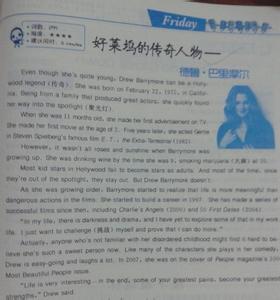 Friday
词数：
难度：★★★★
建议用时：6 minutes
好莱坞的传奇人物——
德鲁·巴里摩尔
Even though she's quite young, Drew Barrymore can be a Holly-
wood legend (传奇). She was born on February 22, 1975, in Califor-
nia. Being from a family that produced great actors, she quickly found
her way into the spotlight (聚光灯).
When she was 11 months old, she made her first advertisement on TV.
She made her first movie at the age of 2. Five years later, she acted Gertie
in Steven Spielberg's famous film E. T., the Extra-Terrestrial (1982).
However, it wasn't all roses and sunshine when Barrymore was
growing up. She was drinking wine by the time she was 9, smoking marijuana (大麻) at 10.
Most kid stars in Hollywood fail to become stars as adults. And most of the time, once
they're out of the spotlight, they stay out. But Drew Barrymore doesn't.
As she was growing older, Barrymore started to realize that life is more meaningful than
dangerous actions in the films. She started to build a career in 1997. She has made a series of
successful films since then, including Charlie's Angels (2000) and 50 First Dates (2004).
"In my life, there is darkness and drama, and I have yet to explore some of that in my work
life. I just want to challenge (挑战) myself and prove that I can do more."
Actually, anyone who's not familiar with her disordered childhood might find it hard to be-
lieve she's such a sweet person now. Like many of the characters she plays in her comedy,
Drew is easy-going and laughs a lot. In 2007, she was on the cover of People magazine's 100
Most Beautiful People issue.
"Life is very interesting — in the end, some of your greatest pains, become your greatest
strengths." Drew said.